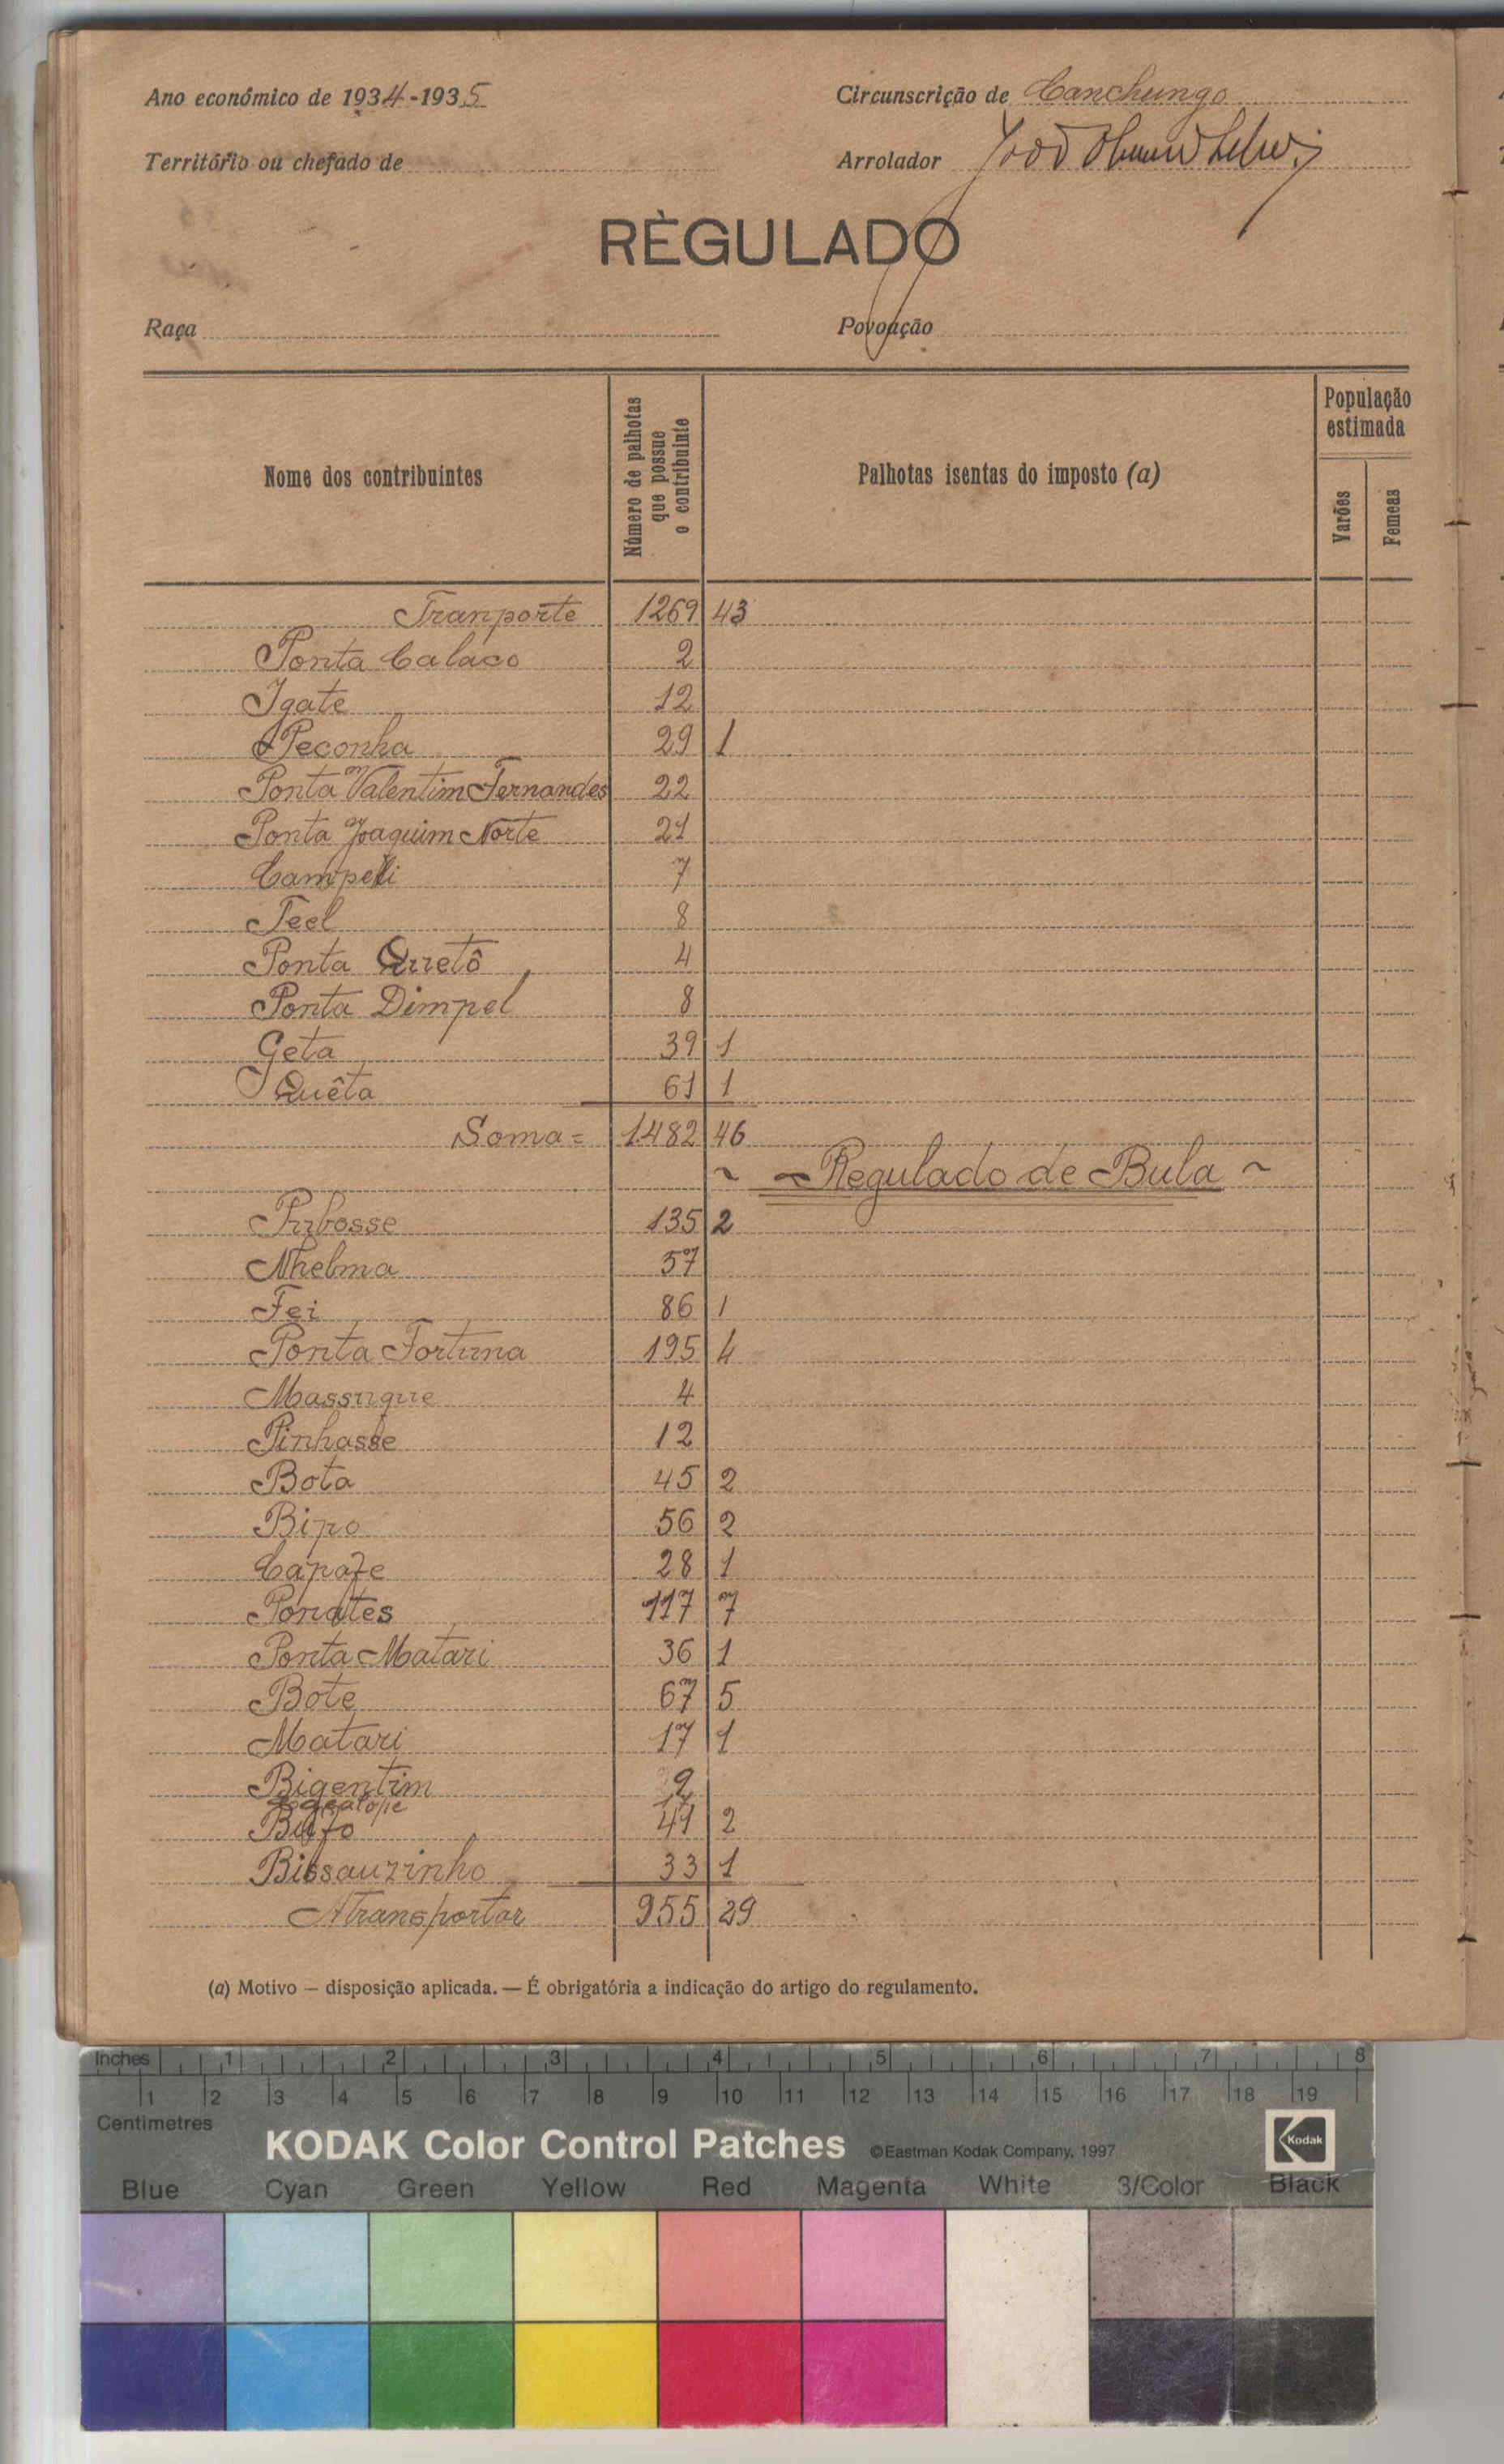 Ano económico de 1934-1935
Circunscrição de Canchungo
Território ou chefado de
Arrolador
RÈGULADO
Raça
Povoação
Nome dos contribuintes
Número de palhotas que possue o contribuinte
Palhotas isentas do imposto (a)
População estimada
Varões
Femeas
Tranporte 1269 43
Ponta Calaco 2
Igate 12
Peconha 29 1
Ponta Valentim Fernandes 22
Ponta Joaquim Norte 21
Campeli 7
Teel 8
Ponta Quetô 4
Ponta Dimpel 8
Geta 39 1
Quêta 61 1
Soma = 1482 46
~ ~ Regulado de Bula ~
Pubosse 135 2
Nhelma 57
Fei 86 1
Ponta Fortuna 195 4
Massuque 4
Pinhasse 12
Bota 45 2
Bipo 56 2
Capafe 28 1
Ponates 117 7
Ponta Matari 36 1
Bote 67 5
Matari 17 1
Bigentim
Bufo 2
Bissauzinho 33 1
A Transportar 955 29
(a) Motivo — disposição aplicada. — É obrigatória a indicação do artigo do regulamento.
Inches 1 2 3 4 5 6 7 8
1 2 3 4 5 6 7 8 9 10 11 12 13 14 15 16 17 18 19
Centimetres
KODAK Color Control Patches ©Eastman Kodak Company, 1997 Kodak
Blue Cyan Green Yellow Red Magenta White 3/Color Black